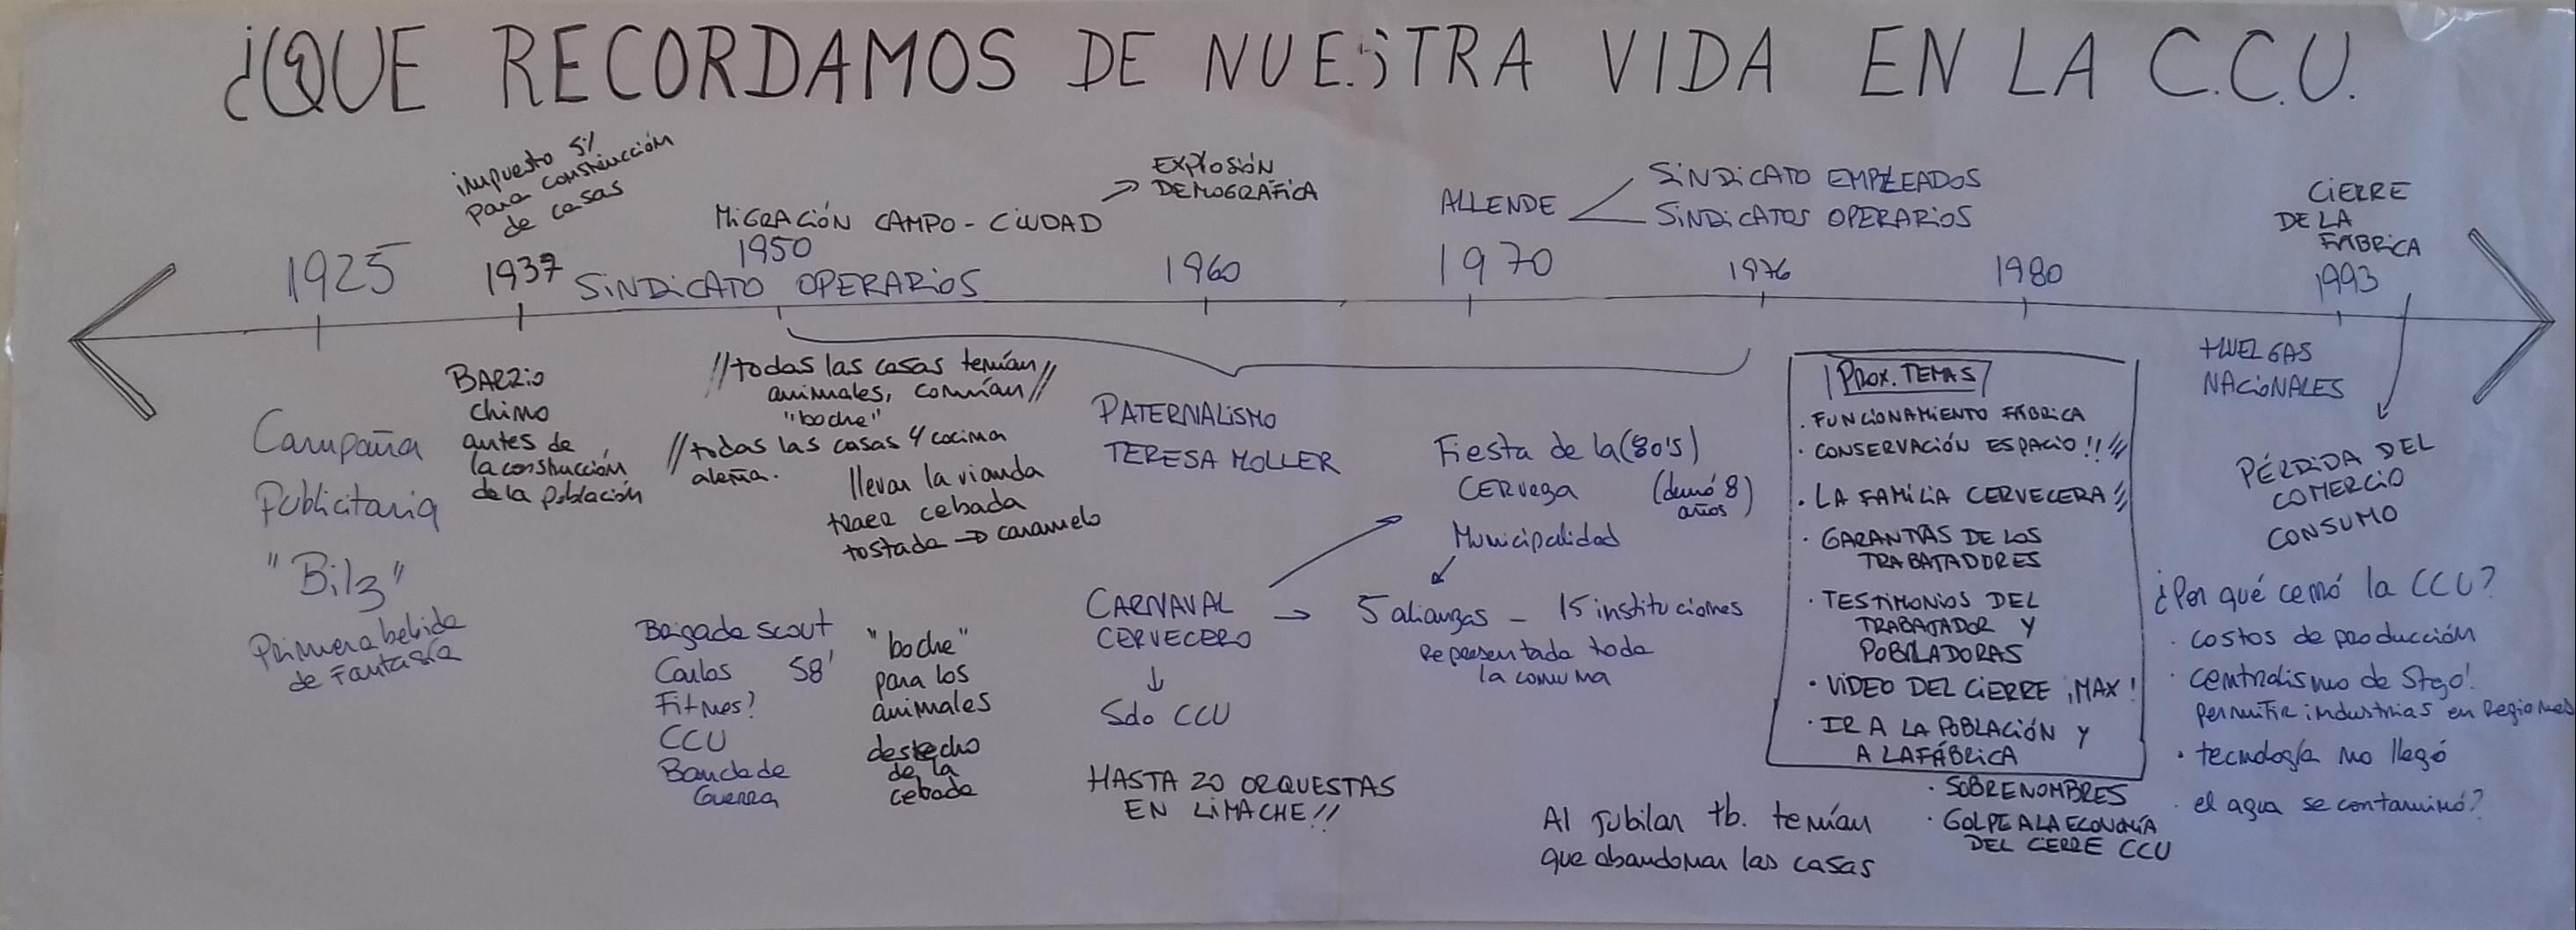 ¿QUE RECORDAMOS DE NUESTRA VIDA EN LA C.C.U.
impuesto 5%
para construcción
de casas
MIGRACIÓN CAMPO - CIUDAD
EXPLOSIÓN
DEMOGRÁFICA
ALLENDE
SINDICATO EMPLEADOS
SINDICATOS OPERARIOS
CIERRE
DE LA
FÁBRICA
1925
1937
1950
SINDICATO OPERARIOS
1960
1970
1976
1980
1993
Campaña
Publicitaria
"Bilz"
Primera bebida
de Fantasía
BARRIO
chino
antes de
la construcción
de la población
//todas las casas tenían//
animales, comían
"boche"
//todas las casas y cocina
alemana.
llevar la vianda
traer cebada
tostada → caramelo
Brigada scout
Carlos 58'
Fitnes?
CCU
Banda de
Guerra
"boche"
para los
animales
desecho
de la
cebada
PATERNALISMO
TERESA MOLLER
CARNAVAL
CERVECERO
↓
Sdo CCU
HASTA 20 ORQUESTAS
EN LIMACHE!!
Fiesta de la (80's)
CERveza (duró 8
años)
Municipalidad
5 alianzas - 15 instituciones
Representada toda
la comuna
Al jubilar tb. tenían
que abandonar las casas
PROX. TEMAS
. FUNCIONAMIENTO FÁBRICA
. CONSERVACIÓN ESPACIO!!
. LA FAMILIA CERVECERA
. GARANTÍAS DE LOS
TRABAJADORES
. TESTIMONIOS DEL
TRABAJADOR Y
POBLADORAS
. VIDEO DEL CIERRE ¡MAX!
. IR A LA POBLACIÓN Y
A LA FÁBRICA
. SOBRENOMBRES
. GOLPE A LA ECONOMÍA
DEL CIERRE CCU
HUELGAS
NACIONALES
PÉRDIDA DEL
COMERCIO
CONSUMO
¿Por qué cerró la CCU?
. costos de producción
. centralismo de Stgo!
permitir industrias en Regiones
. tecnología no llegó
. el agua se contaminó?